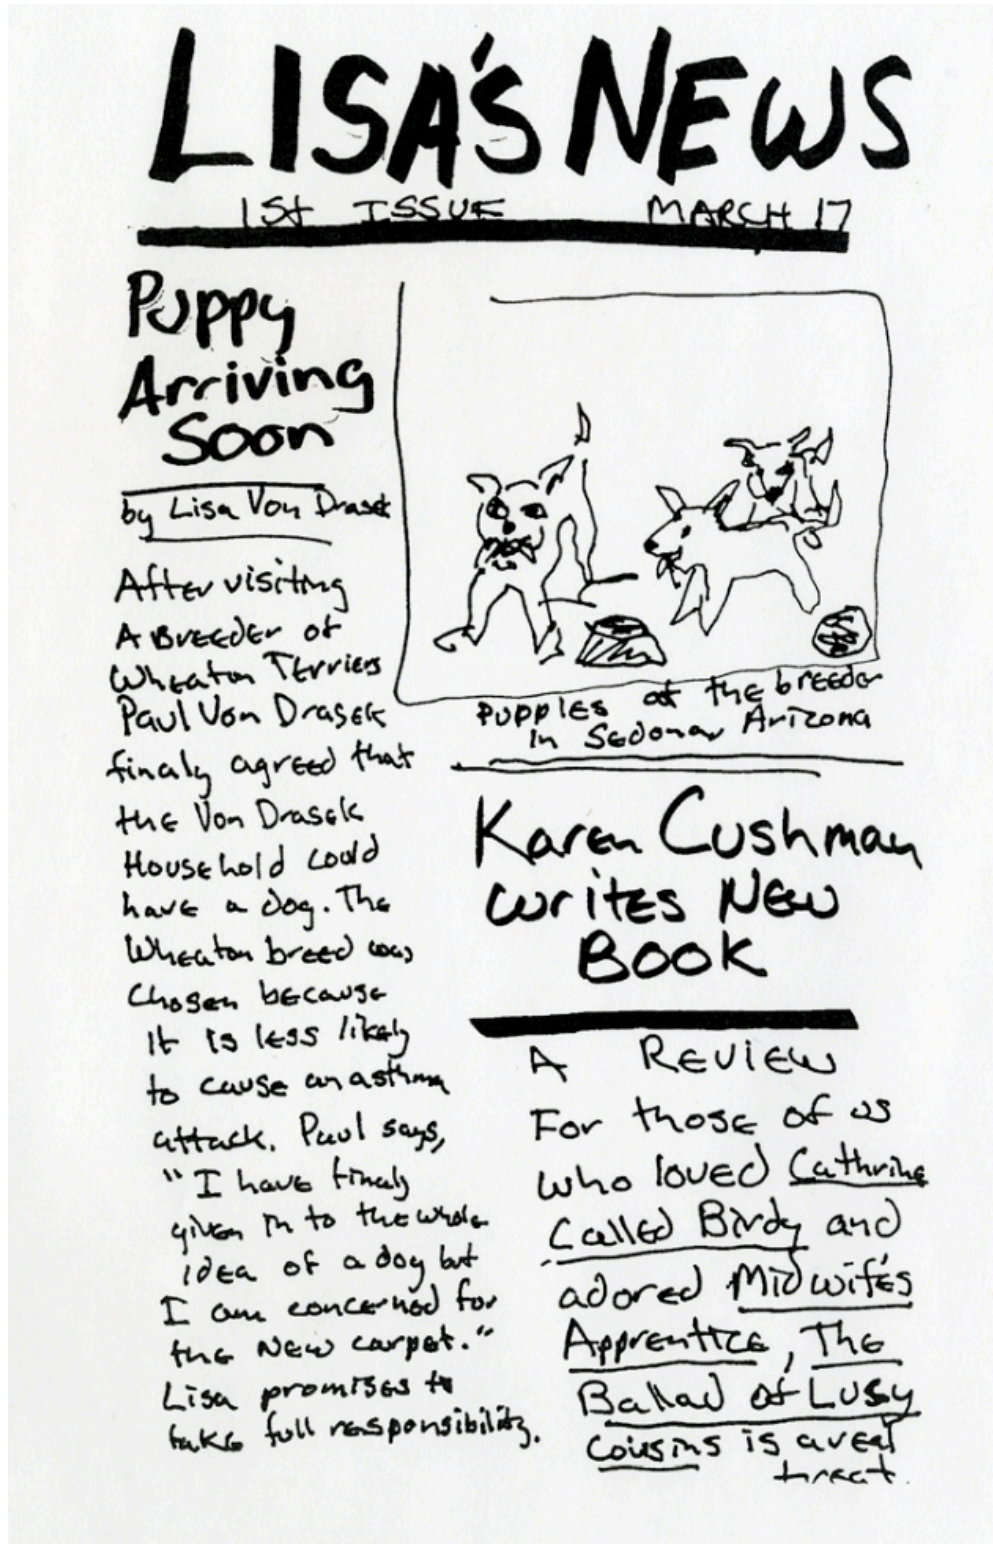 LISA'S NEWS
1st ISSUE MARCH 17
Puppy
Arriving
Soon
by Lisa Von Drasek
After visiting
A BREEDER of
Wheaton Terriers
Paul Von Drasek
finaly agreed that
the Von Drasek
Household could
have a dog. The
Wheaton breed was
Chosen because
It is less likely
to cause an asthma
attack. Paul says,
"I have finaly
given in to the whole
idea of a dog but
I am concerned for
the New carpet."
Lisa promises to
take full responsibility.
puppies at the breeder
in Sedona, Arizona
Karen Cushman
writes New
BOOK
A REVIEW
For those of us
who loved Cathrine
Called Birdy and
adored Midwife's
Apprentice, The
Ballad of Lusy
Cousins is a real
treat.